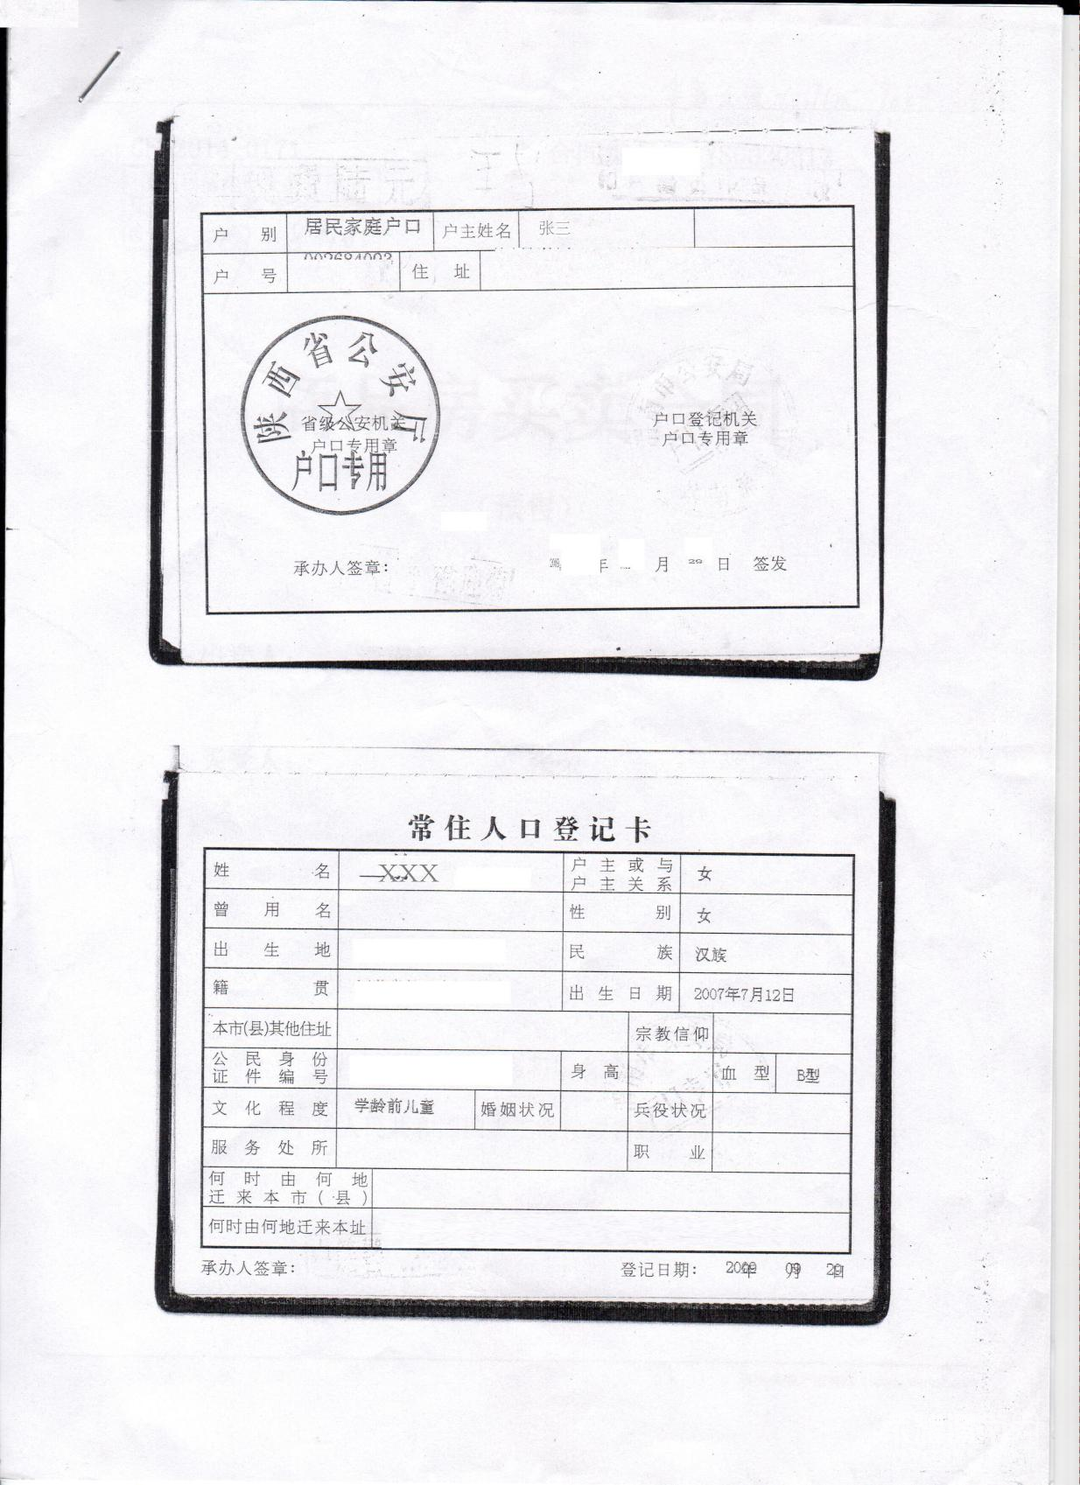 户 别 居民家庭户口 户主姓名 张三
户 号 住 址
陕西省公安厅
省级公安机关
户口专用章
户口专用
户口登记机关
户口专用章
承办人签章: 年 月 日 签发
常住人口登记卡
姓 名 XXX 户主或与户主关系 女
曾用名 性 别 女
出生地 民 族 汉族
籍 贯 出生日期 2007年7月12日
本市(县)其他住址 宗教信仰
公民身份证件编号 身高 血型 B型
文化程度 学龄前儿童 婚姻状况 兵役状况
服务处所 职 业
何时由何地迁来本市(县)
何时由何地迁来本址
承办人签章: 登记日期: 2009年 09月 29日